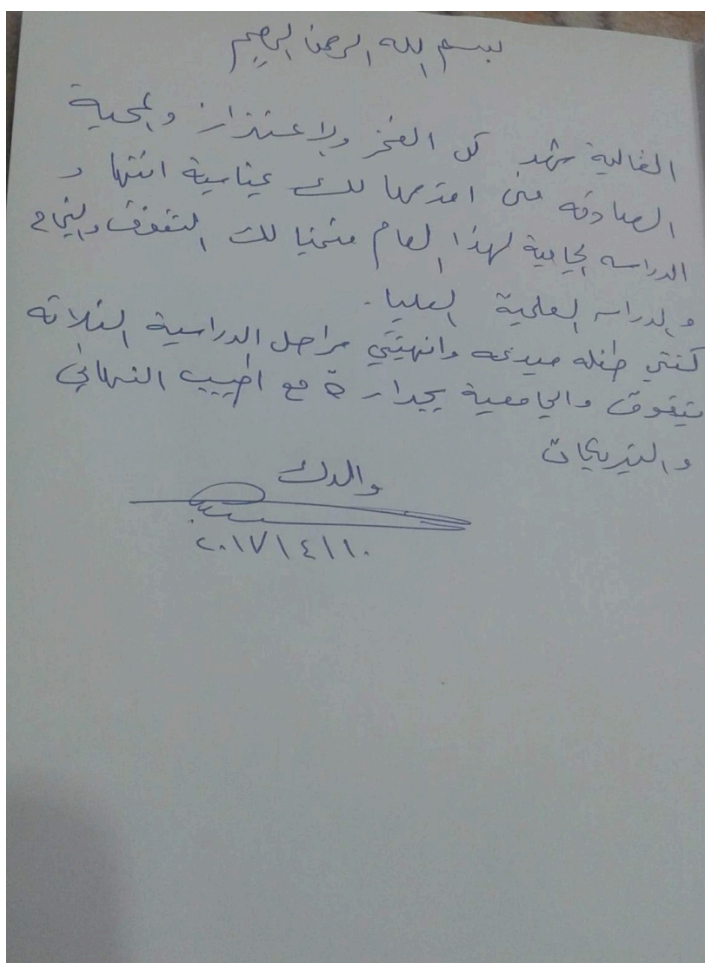 بسم الله الرحمن الرحيم
الغالية شهد كل الفخر والاعتزاز والمحبة
الصادقه مني اقدمها لك بمناسبة انتهاء
الدراسه الجامعية لهذا العام متمنيا لك التفوق والنجاح
والدراسه العلمية العليا.
كنتي طفله مبدعه وانهيتي مراحل الدراسية الثلاثه
بتفوق والجامعية بجدارة مع اطيب التهاني
والتبريكات
والدك
٢٠١٧/٤/١٠